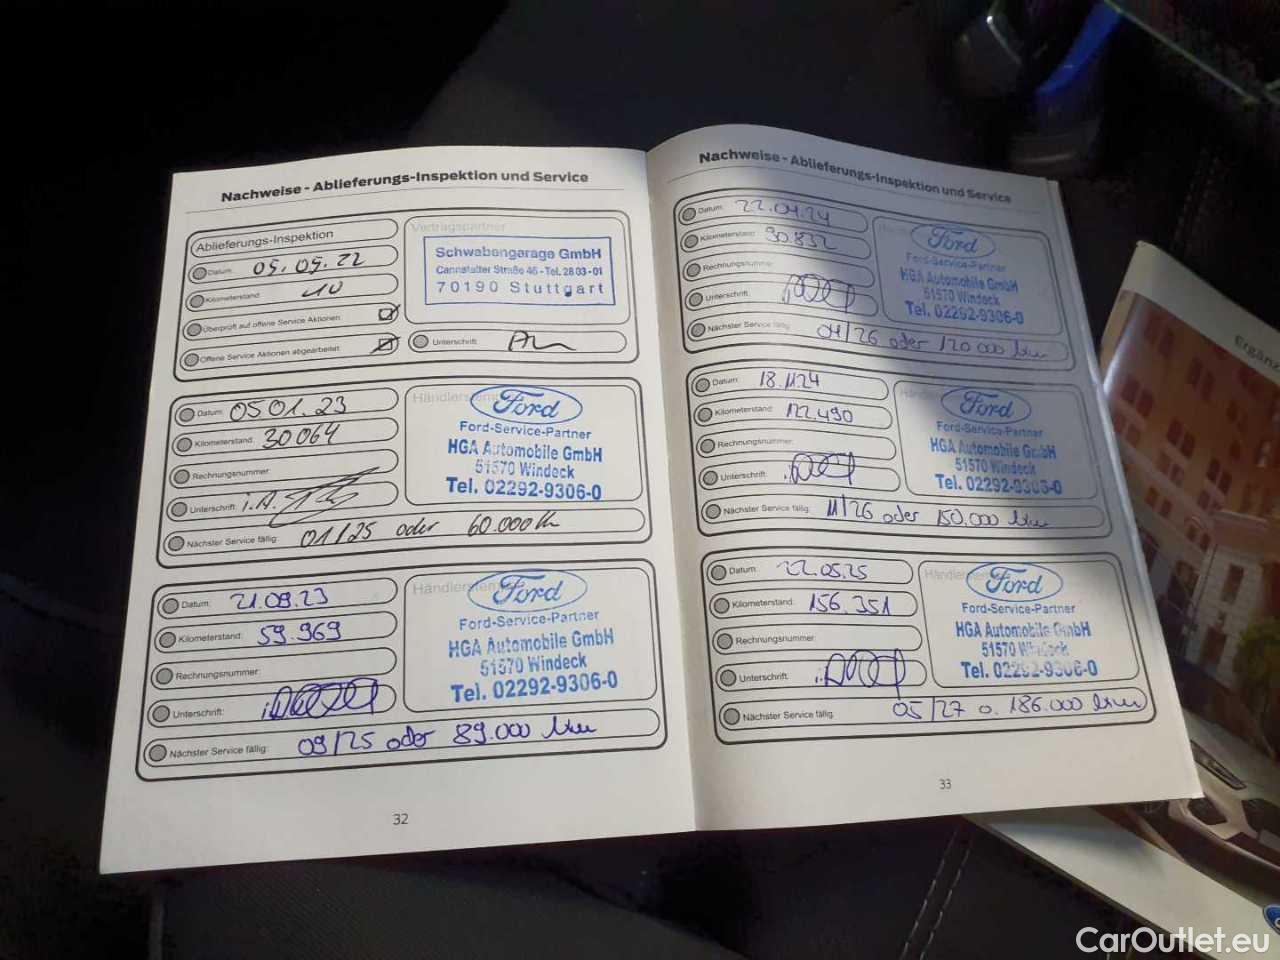 Nachweise - Ablieferungs-Inspektion und Service
Ablieferungs-Inspektion
Datum: 05.09.22
Kilometerstand: 10
Überprüft auf offene Service Aktionen:
Offene Service Aktionen abgearbeitet:
Vertragspartner
Schwabengarage GmbH
Cannstatter Straße 46 - Tel. 28 03 - 01
70190 Stuttgart
Unterschrift:
Datum: 05 01. 23
Kilometerstand: 30 064
Rechnungsnummer:
Unterschrift: i.A.
Nächster Service fällig: 01/25 oder 60.000 km
Händlerstempel
Ford
Ford-Service-Partner
HGA Automobile GmbH
51570 Windeck
Tel. 02292-9306-0
Datum: 21.09.23
Kilometerstand: 59.969
Rechnungsnummer:
Unterschrift:
Nächster Service fällig: 09/25 oder 89.000 km
Händlerstempel
Ford
Ford-Service-Partner
HGA Automobile GmbH
51570 Windeck
Tel. 02292-9306-0
32
Nachweise - Ablieferungs-Inspektion und Service
Datum: 22.04.24
Kilometerstand: 90.832
Rechnungsnummer:
Unterschrift:
Nächster Service fällig: 04/26 oder 120.000 km
Ford
Ford-Service-Partner
HGA Automobile GmbH
51570 Windeck
Tel. 02292-9306-0
Datum: 18.11.24
Kilometerstand: 122.490
Rechnungsnummer:
Unterschrift:
Nächster Service fällig: 11/26 oder 150.000 km
Ford
Ford-Service-Partner
HGA Automobile GmbH
51570 Windeck
Tel. 02292-9306-0
Datum: 22.05.25
Kilometerstand: 156.351
Rechnungsnummer:
Unterschrift:
Nächster Service fällig: 05/27 o. 186.000 km
Ford
Ford-Service-Partner
HGA Automobile GmbH
51570 Windeck
Tel. 02292-9306-0
33
CarOutlet.eu